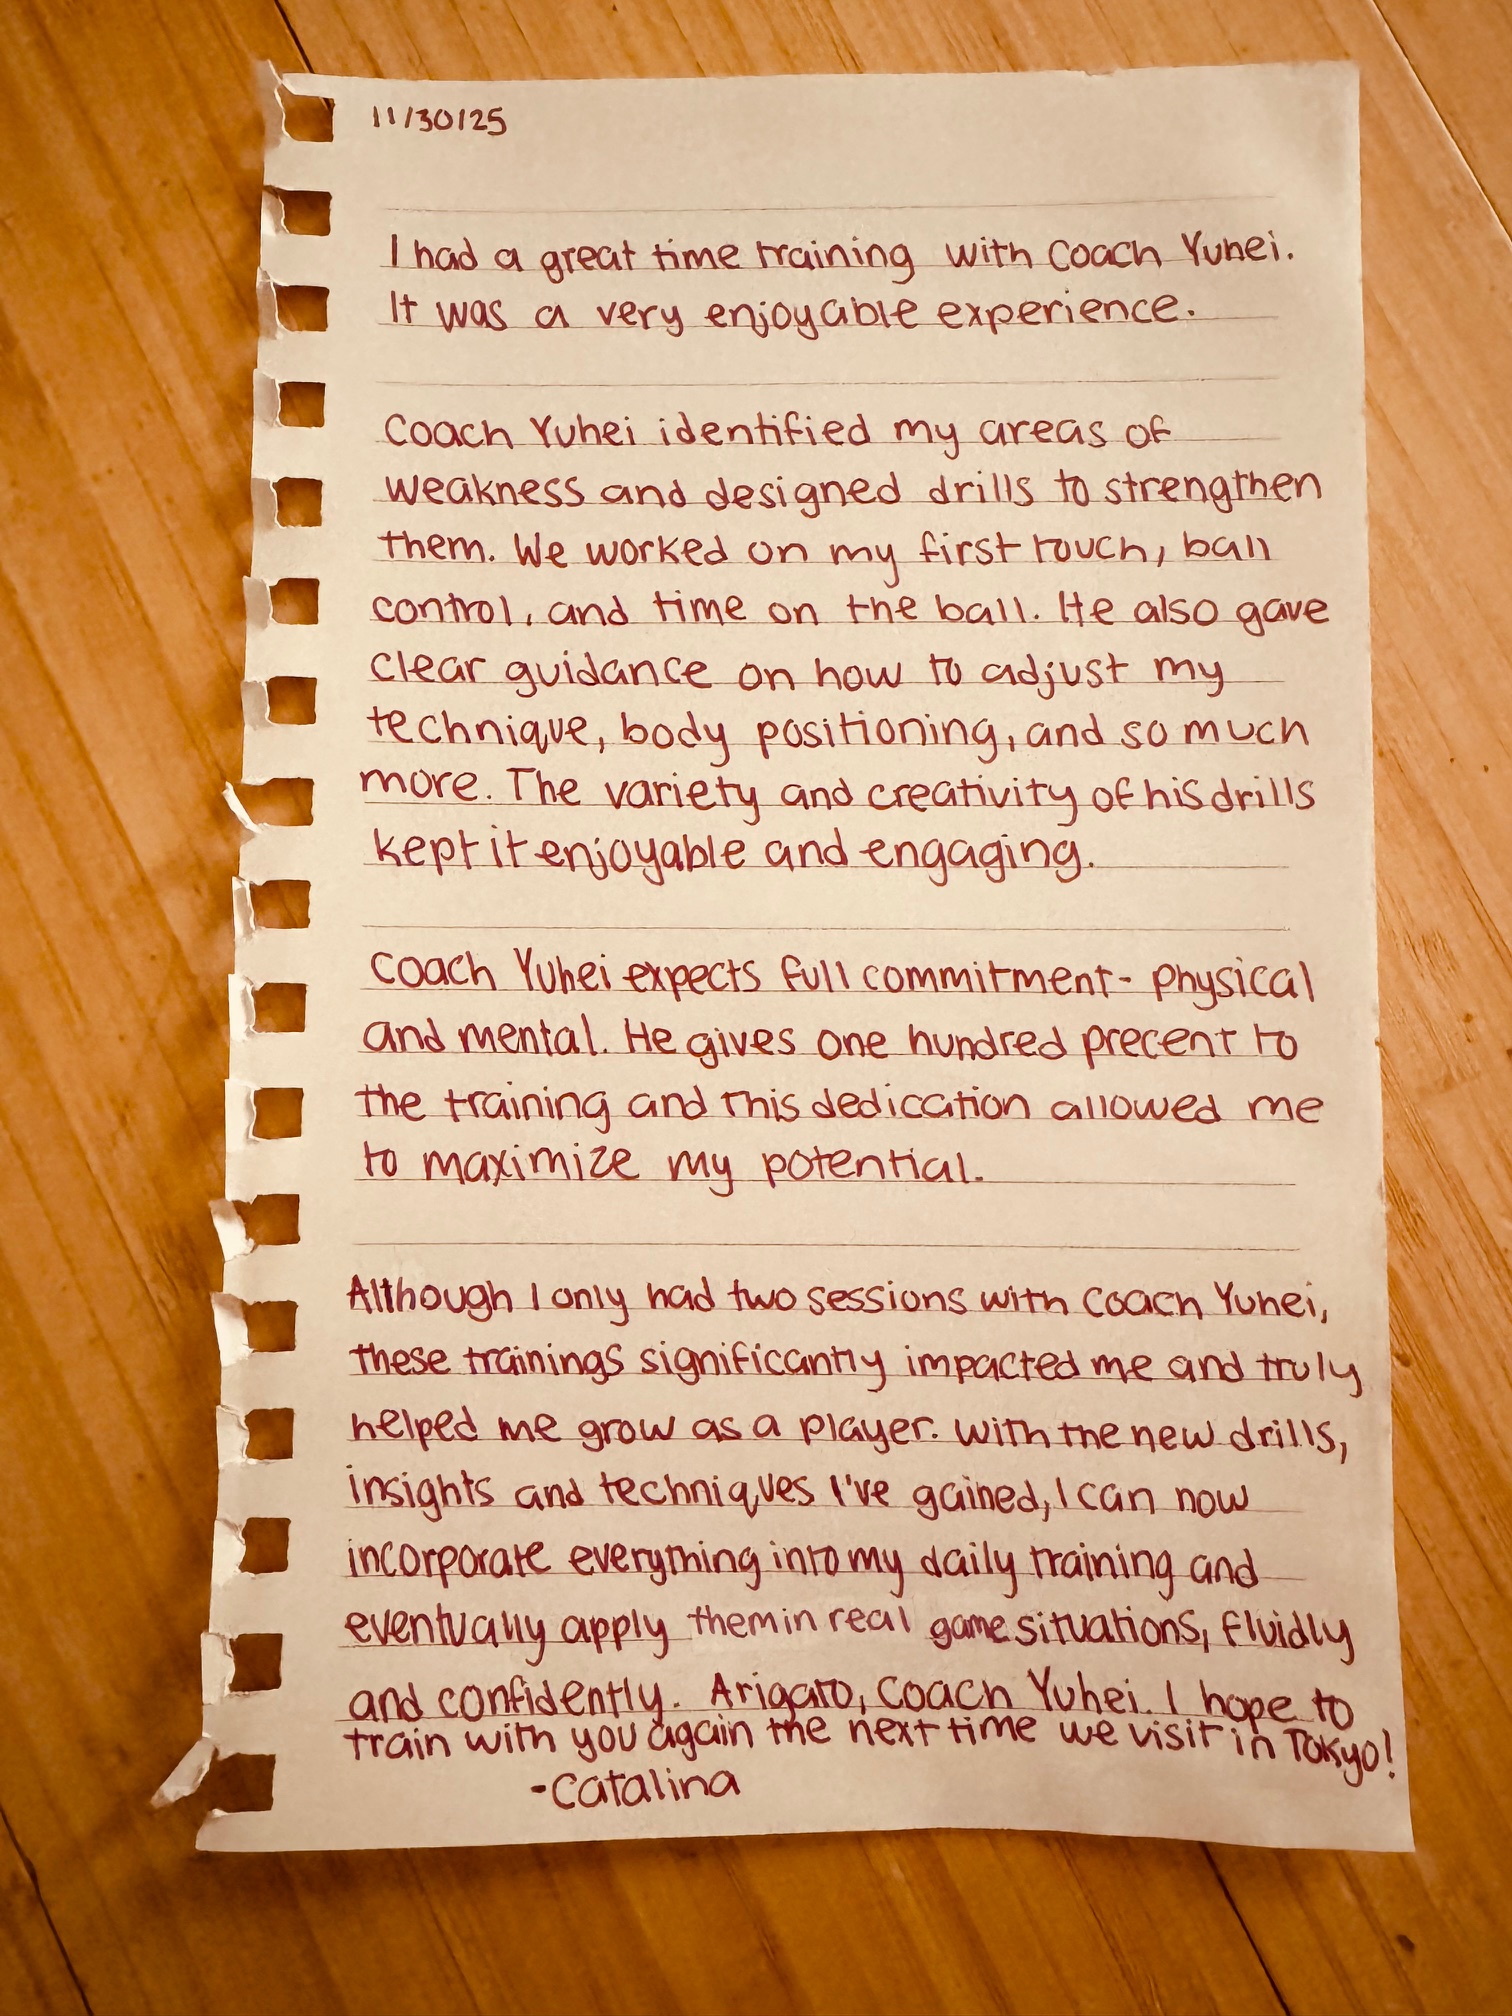 11/30/25
I had a great time training with Coach Yuhei.
It was a very enjoyable experience.
Coach Yuhei identified my areas of
weakness and designed drills to strengthen
them. We worked on my first touch, ball
control, and time on the ball. He also gave
clear guidance on how to adjust my
technique, body positioning, and so much
more. The variety and creativity of his drills
kept it enjoyable and engaging.
Coach Yuhei expects full commitment- physical
and mental. He gives one hundred precent to
the training and this dedication allowed me
to maximize my potential.
Although I only had two sessions with Coach Yuhei,
these trainings significantly impacted me and truly
helped me grow as a player. With the new drills,
insights and techniques I've gained, I can now
incorporate everything into my daily training and
eventually apply them in real game situations, fluidly
and confidently. Arigato, Coach Yuhei. I hope to
train with you again the next time we visit in Tokyo!
-Catalina